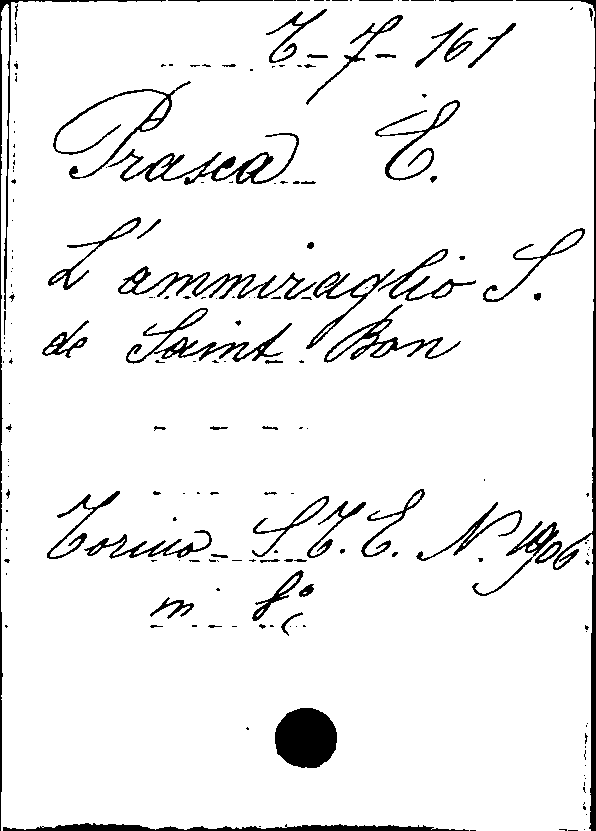 T-7-161
Prasca E.
L'ammiraglio S.
de Saint Bon
Torino S.T.E.N. 1906
in 8°